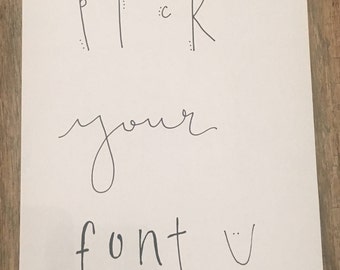 PIcK
your
font